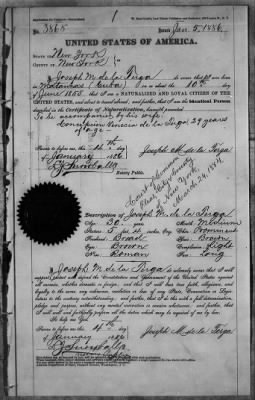 No. 3865 Issued Jan. 5, 1886
UNITED STATES OF AMERICA.
STATE OF New York
COUNTY OF New York
I Joseph M. de la Puga do swear that I was born
in Matanzas (Cuba) on the 10th day
of June 1855 that I am a NATURALIZED AND LOYAL CITIZEN OF THE
UNITED STATES, and about to travel abroad; and further, that I am the Identical Person
described in the Certificate of Naturalization
To be accompanied by his wife,
Concepcion de la Puga 29 years
of age.
Sworn to before me this 4th day
of January 1886 Joseph M. de la Puga
Notary Public.
Court of Common
Pleas City & County
of New York
March 24, 1884
Description of Joseph M. de la Puga
Age: 30 years Mouth: Medium
Stature: 5 feet inches Chin: Prominent
Forehead: Broad Hair: Brown
Eyes: Brown Complexion: Light
Nose: Roman Face: Long
I Joseph M. de la Puga do solemnly swear that I will
support, protect and defend the Constitution and Government of the United States against
all enemies, whether domestic or foreign; and that I will bear true faith, allegiance, and
loyalty to the same, any ordinance, resolution or law of any State, Convention or Legislature
to the contrary notwithstanding; and further, that I do this with a full determination,
pledge and purpose, without any mental reservation or evasion whatsoever; and further, that
I will well and faithfully perform all the duties which may be required of me by law.
So help me God
Sworn to before me this 4th day
of January 1886 Joseph M. de la Puga